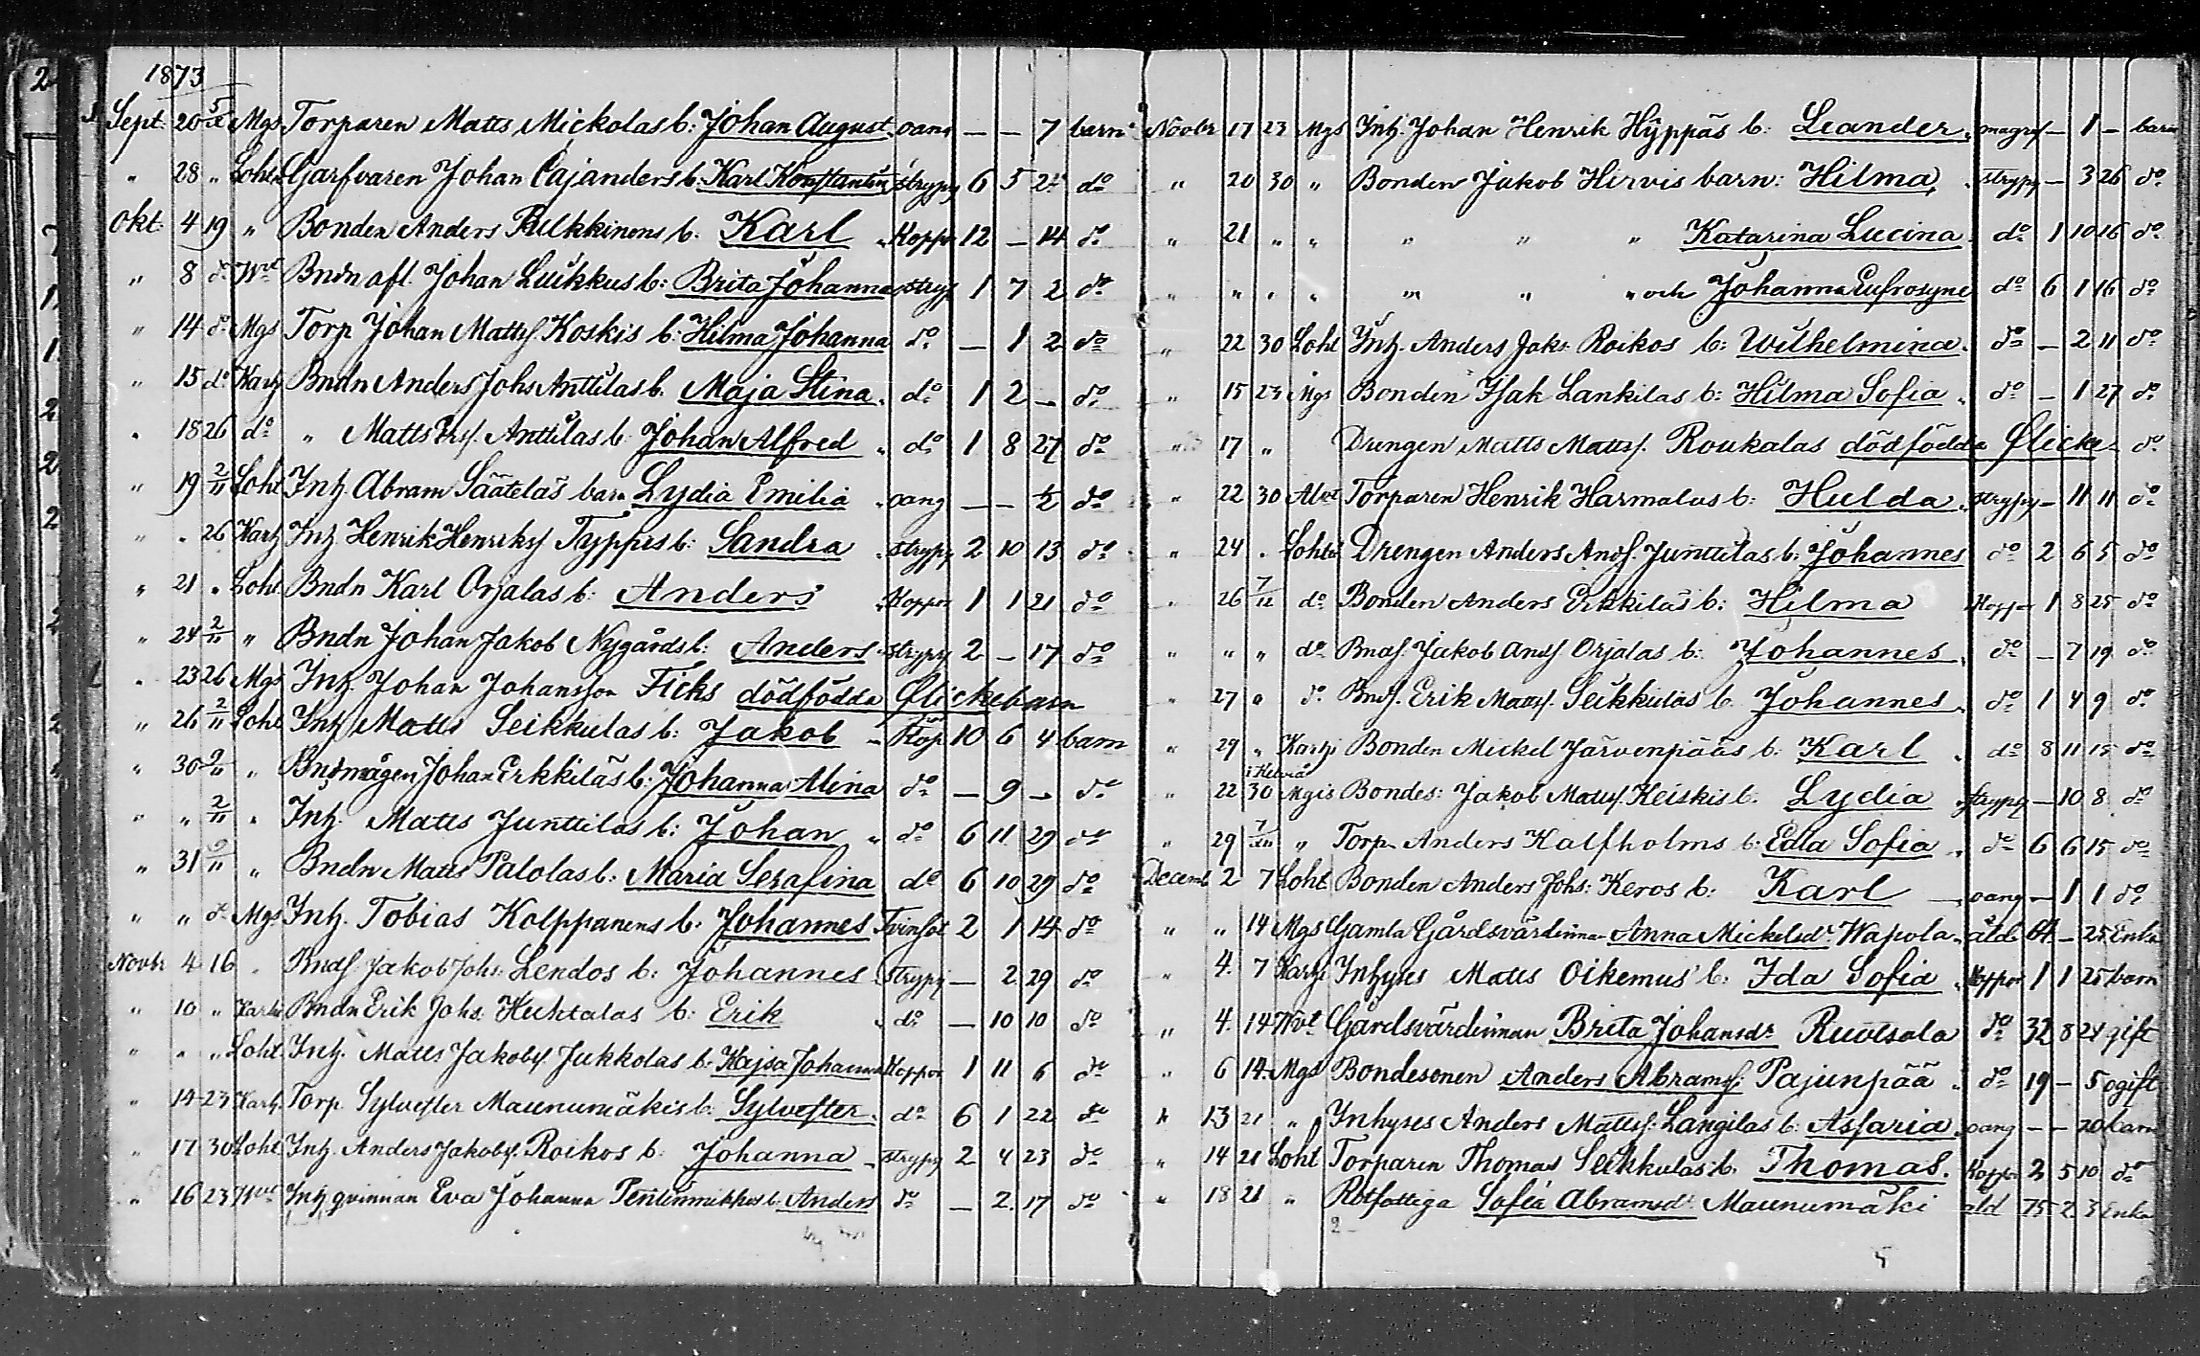 1873
Sept: 20 5/10 Mgs Torparen Matts Mickolas b: Johan August oang — — 7 barn
" 28 " Lohte Garfvaren Johan Cajanders b. Karl Konstantin stryps 6 5 24 do
Okt: 4 19 " Bonden Anders Pulkkinens b. Karl Koppr 12 — 14 do
" 8 do Wvt Bndn afl. Johan Luikkus b: Brita Johanna stryp 1 7 2 do
" 14 do Mgs Torp Johan Mattss. Koskis b: Hilma Johanna do — 1 2 do
" 15 do Karhj Bndn Anders Johs Anttilas b. Maja Stina do 1 2 — do
" 18 26 do " Matts Anttilas b. Johan Alfred do 1 8 27 do
" 19 2/11 Loht Inh. Abram Sääteläs barn Lydia Emilia oang — — ½ do
" " 26 Karhj Inh. Henrik Henrikss Tayppis b: Sandra strypsj 2 10 13 do
" 21 " Loht Bndn Karl Orjalas b: Anders Koppor 1 1 21 do
" 24 2/11 " Bndn Johan Jakob Nygårds b: Anders strypsj 2 — 17 do
" 23 26 Mgs Inh. Johan Johansson Ficks dödfödda flickebarn
" 26 2/11 Loht Inh Matts Seikkulas b: Jakob Kop 10 6 4 barn
" 30 9/11 " Bndmågen Johan Erkkiläs b: Johanna Alina do — 9 — do
" " 2/11 " Inh. Matts Junttilas b: Johan do 6 11 29 do
" 31 9/11 " Bndn Matts Palolas b: Maria Serafina do 6 10 29 do
" " do Mgs Inh. Tobias Kolppanens b: Johannes Tvinsot 2 1 14 do
Novbr 4 16 " Bnds Jakob Johs: Lendos b: Johannes Strypsj — 2 29 do
" 10 " Karhi Bndn Erik Johs: Huhtalas b: Erik do — 10 10 do
" " " Loht Inh. Matts Jakobss Jukkolas b: Kajsa Johanna Koppor 1 11 6 do
" 14 23 Karhj Torp Sylvester Maunumäkis b: Sylvester do 6 1 22 do
" 17 30 Loht Inh. Anders Jakobss. Roikos b: Johanna strypsj 2 4 23 do
" 16 23 Wvt Inh qvinnan Eva Johanna b. Anders do — 2 17 do
Novbr 17 23 Mgs Inh. Johan Henrik Hyppäs b: Leander magref — 1 — barn
" 20 30 " Bonden Jakob Hirvis barn: Hilma strypsj — 3 26 do
" 21 " " " " " Katarina Lucina do 1 10 16 do
" " " " " " " och Johanna Eufrosyne do 6 1 16 do
" 22 30 Loht Inh. Anders Jaks. Roikos b: Wilhelmina do — 2 11 do
" 15 23 Mgs Bonden Isak Lankilas b: Hilma Sofia do — 1 27 do
" 17 " Drengen Matts Mattss. Roukalas dödfödda flicke do
" 22 30 Alvt Torparen Henrik Harmalas b: Hulda strypsj — 11 11 do
" 24 " Lohte Drengen Anders Ands. Junttilas b: Johannes do 2 6 5 do
" 26 7/12 do Bonden Anders Erkkiläs b: Hilma Kopp 1 8 25 do
" " " do Bnds Jakob Ands Orjalas b: Johannes do — 7 19 do
" 27 " do Bnds. Erik Matss. Seikkulas b Johannes do 1 4 9 do
" 29 " Karhji Bonden Mickel Järvenpääs b: Karl do 8 11 15 do
i Kelviå
" 22 30 Mgis Bondes: Jakob Matss. Keiskis b. Lydia strypsj — 10 8 do
" 29 7/12 " Torp Anders Kalfholms b: Edla Sofia do 6 6 15 do
Decemb 2 7 Loht Bonden Anders Johs: Keros b: Karl oang — 1 1 do
" " 14 Mgs Gamla Gårdsvärdinna Anna Mickelsdr. Wapola åld 64 — 25 Enka
" 4 7 Karhji Inhyses Matts Oikemus b: Ida Sofia Koppor 1 1 25 barn
" 4 14 Wvt Gårdsvärdinnan Brita Johansdr Ruotsala do 32 8 24 gift
" 6 14 Mgs Bondesonen Anders Abramss Pajunpää do 19 — 5 ogift
" 13 21 " Inhyses Anders Mattss: Langilas b: Asfaria oang — — 20 barn
" 14 21 Loht Torparen Thomas Seikkulas b. Thomas. Koppr 2 5 10 do
" 18 21 " Rotfattiga Sofia Abramsdr Maunumäki åld 75 2 3 Enka